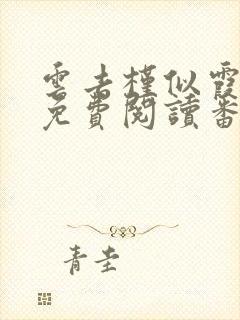 雲去槿似霞
免費閱讀番
青圭